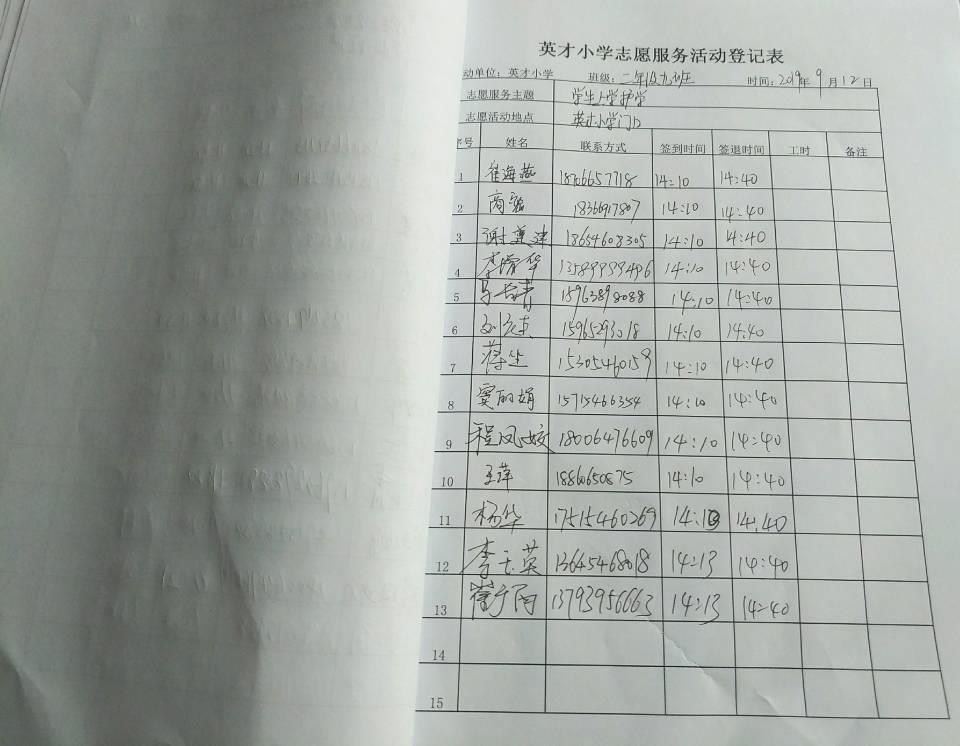 英才小学志愿服务活动登记表
动单位：英才小学 班级：二年级九班 时间：2019年9月12日
志愿服务主题 学生上学护学
志愿活动地点 英才小学门口
序号 姓名 联系方式 签到时间 签退时间 工时 备注
1 崔海燕 18706657718 14:10 14:40
2 商 18366917807 14:10 14:40
3 谢 18654608305 14:10 14:40
4 李 华 13589999496 14:10 14:40
5 14:10 14:40
6 刘 15965293018 14:10 14:40
7 蒋生 15305460159 14:10 14:40
8 窦丽娟 15715466354 14:10 14:40
9 程凤姣 18006476609 14:10 14:40
10 王萍 18860650875 14:10 14:40
11 杨华 17515460269 14:13 14:40
12 李玉英 13645468018 14:13 14:40
13 崔 13793956663 14:13 14:40
14
15